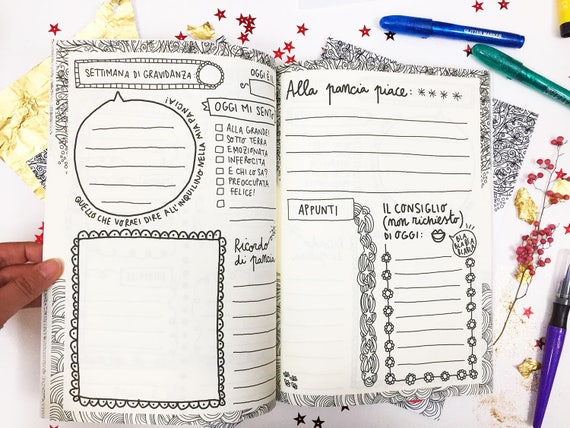 SETTIMANA DI GRAVIDANZA:
OGGI È
QUELLO CHE VORREI DIRE ALL'INQUILINO NELLA MIA PANCIA!
OGGI MI SENTO
ALLA GRANDE!
SOTTO TERRA
EMOZIONATA
INFEROCITA
E CHI LO SA?
PREOCCUPATA
FELICE!
Ricordo
di pancia
Alla pancia piace:
APPUNTI
IL CONSIGLIO
(non richiesto)
DI OGGI:
BLA
BLA BLA
BLABLA
GLITTER MARKER